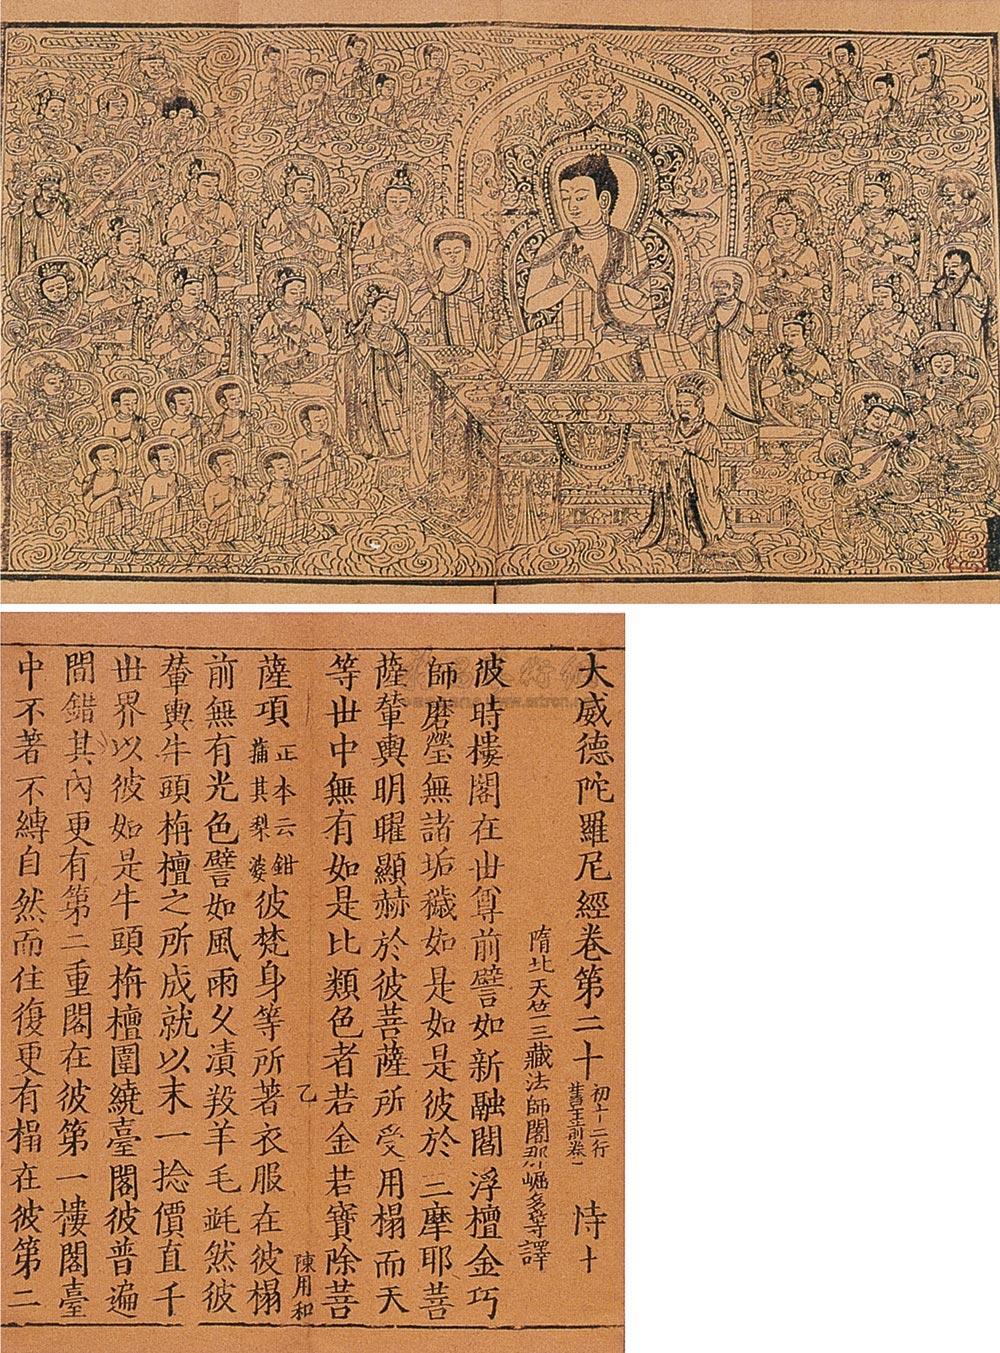 大威德陀羅尼經卷第二十 初十二行 恃十
隋北天竺三藏法師闍那崛多等譯
彼時樓閣在世尊前譬如新融閻浮檀金巧
師磨瑩無諸垢穢如是如是彼於三摩耶菩
薩輦輿明曜顯赫於彼菩薩所受用榻而天
等世中無有如是比類色者若金若寶除菩
乙 陳用和
薩項 正本云鉗蒱其梨婆 彼梵身等所著衣服在彼榻
前無有光色譬如風雨久漬羖羊毛毼然彼
輦輿牛頭栴檀之所成就以末一捻價直千
世界以彼如是牛頭栴檀圍繞臺閣彼普遍
間錯其內更有第二重閣在彼第一樓閣臺
中不著不縛自然而住復更有榻在彼第二